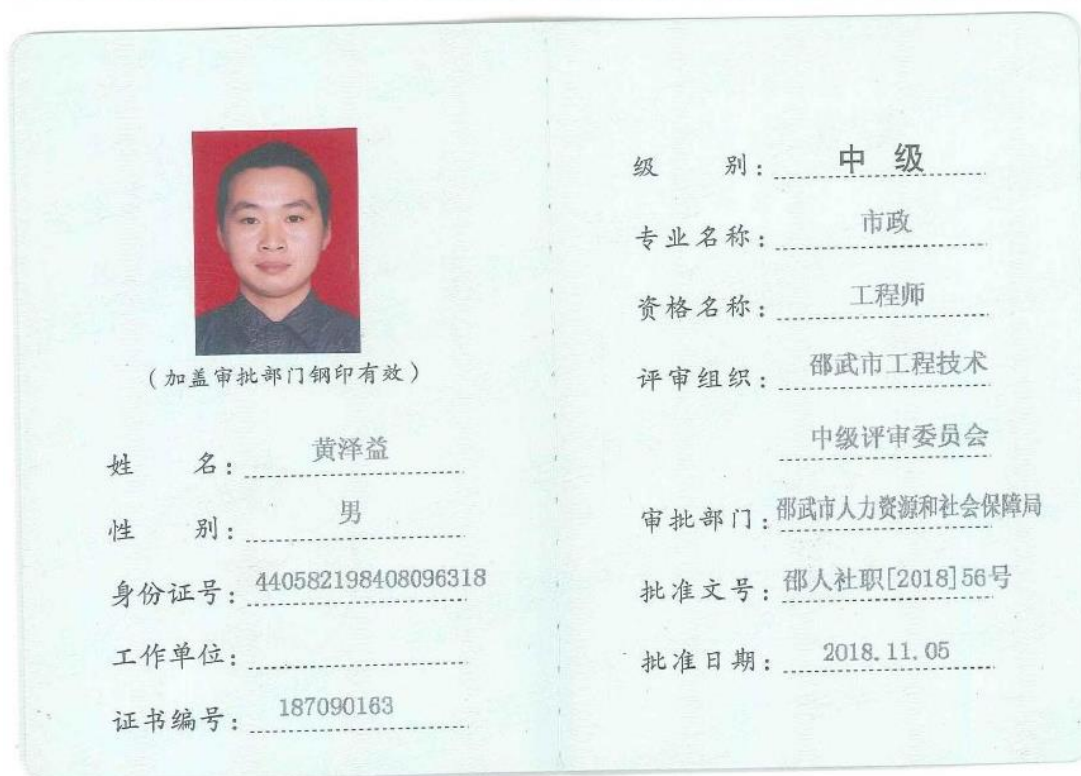 （加盖审批部门钢印有效）
姓 名：黄泽益
性 别：男
身份证号：440582198408096318
工作单位：
证书编号：187090163
级 别：中 级
专业名称：市政
资格名称：工程师
评审组织：邵武市工程技术
中级评审委员会
审批部门：邵武市人力资源和社会保障局
批准文号：邵人社职[2018]56号
批准日期：2018.11.05